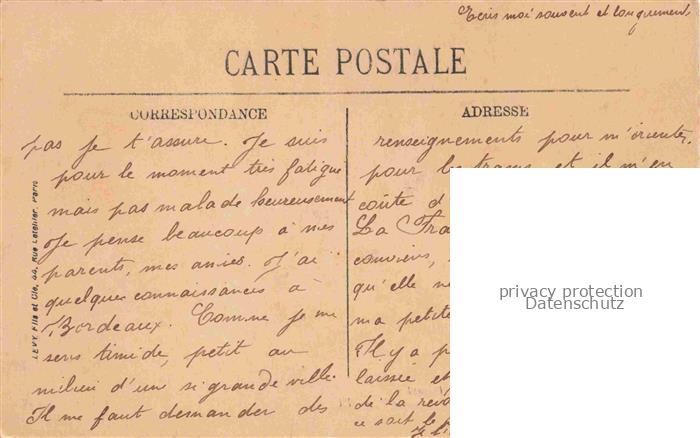 Ecris moi souvent et longuement
CARTE POSTALE
CORRESPONDANCE
ADRESSE
pas je t'assure. Je suis
pour le moment très fatigué
mais pas malade heureusement
Je pense beaucoup à mes
parents, mes amies. J'ai
quelques connaissances à
Bordeaux. Comme je me
sens timide, petit au
milieu d'un si grande ville.
Il me faut demander des
renseignements pour m'orienter,
pour les trams et il m'en
coûte d
La Fra
conviens,
qu'elle ne
ma petite
Il y a p
laissée et
de la rev
ce soit le
LEVY Fils et Cie, 44, Rue Letellier, Paris
privacy protection
Datenschutz